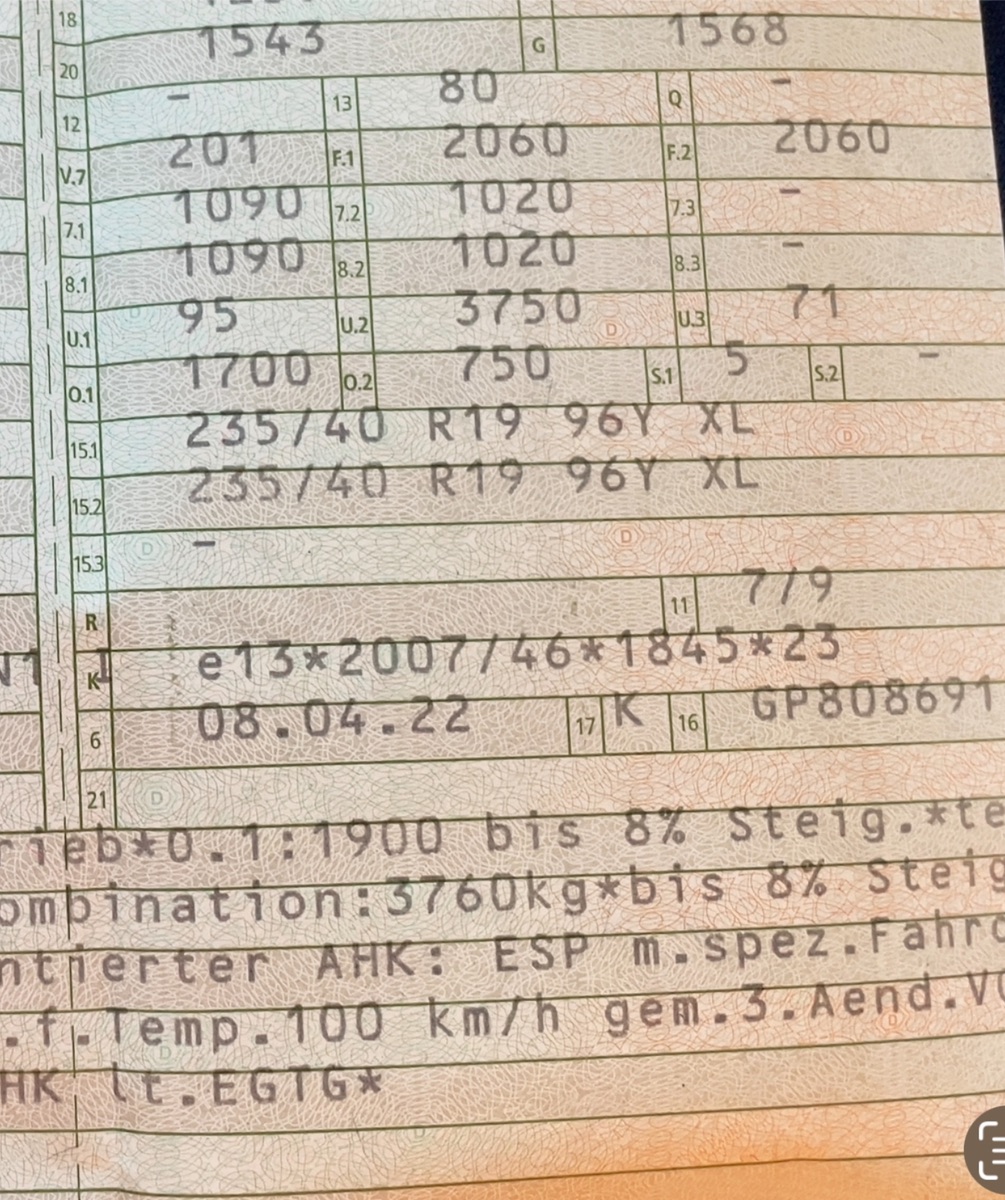 18
20 1543 G 1568
12 - 13 80 Q -
V.7 201 F.1 2060 F.2 2060
7.1 1090 7.2 1020 7.3 -
8.1 1090 8.2 1020 8.3 -
U.1 95 U.2 3750 U.3 71
O.1 1700 O.2 750 S.1 5 S.2 -
15.1 235/40 R19 96Y XL
15.2 235/40 R19 96Y XL
15.3 -
R 11 7/9
K e13*2007/46*1845*23
6 08.04.22 17 K 16 GP808691
21
rieb*0.1:1900 bis 8% Steig.*te
ombination:3760kg*bis 8% Steig
ntierter AHK: ESP m.spez.Fahrd
.f.Temp.100 km/h gem.3.Aend.V
HK lt.EGTG*